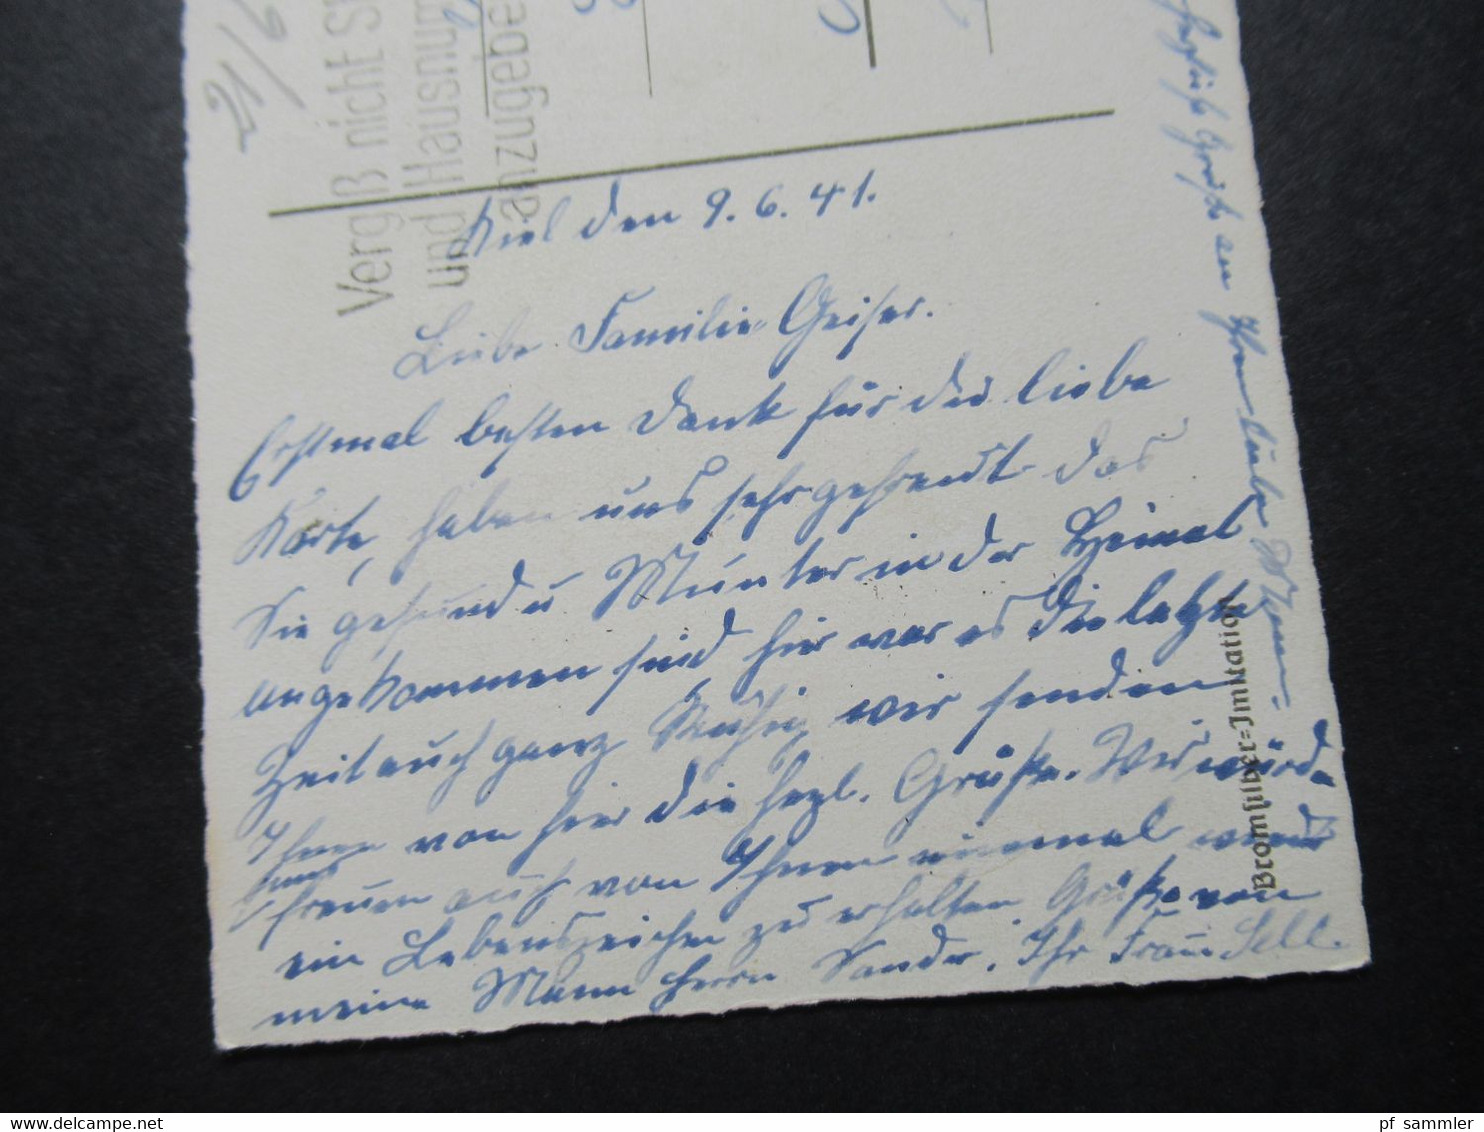 21/6
Vergiß nicht St
und Hausnum
anzugebe
Kiel den 9.6.41.
Liebe Familie Geiser.
Erstmal besten Dank für die liebe
Karte, haben uns sehr gefreut das
Sie gesund u Munter in der Heimat
angekommen sind hier war es die letzte
Zeit auch ganz Ruhig wir senden
Ihnen von hier die herzl. Grüße. Wir würde
freuen auch von Ihnen einmal wieder
ein Lebenszeichen zu erhalten Grüße von
meine Mann Herrn Sander. Ihr Frau Sell.
Grüße an Ihre liebe
Bromsilber=Imitation
pf sammler
delcampe.net